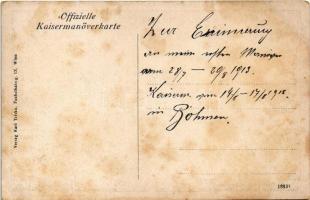 Offizielle
Kaisermanöverkarte
Zur Erinnerung
an mein erstes Manöver
vom 28/7 – 29/8 1913.
Kaiserm. vom 14/8 – 17/8 1913.
in Böhmen.
Verlag Karl Teichs, IX. Wien